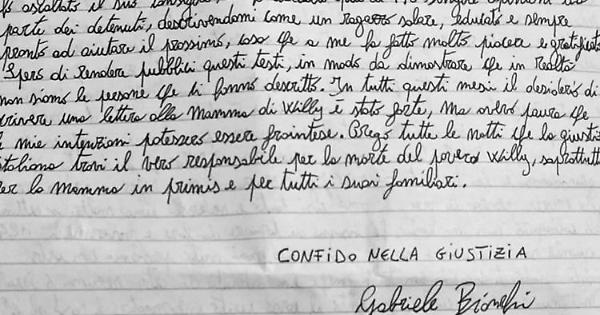 ho ascoltato il suo consiglio,
parte dei detenuti, descrivendomi come un ragazzo solare, educato e sempre
pronto ad aiutare il prossimo, cosa che a me ha fatto molto piacere e gratificato
Spero di rendere pubblici questi testi, in modo da dimostrare che in realtà
non siamo le persone che ci hanno descritto. In tutti questi mesi il desiderio di
scrivere una lettera alla Mamma di Willy è stato forte, ma avevo paura che
le mie intenzioni potessero essere fraintese. Prego tutte le notti che la giustizia
italiana trovi il vero responsabile per la morte del povero Willy, soprattutto
per la mamma in primis e per tutti i suoi familiari.
CONFIDO NELLA GIUSTIZIA
Gabriele Bianchi